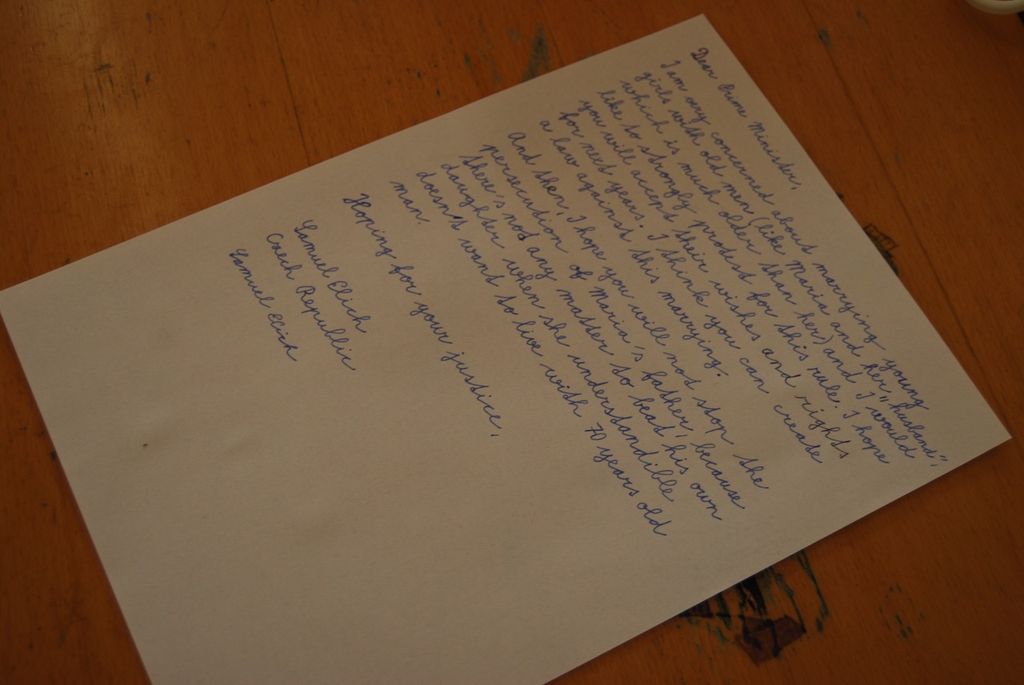 Dear Prime Minister,
I am very concerned about marrying young
girls with old men (like Maria and her „husband",
which is much older than her) and I would
like to strongly protest for this rule. I hope
you will accept their wishes and rights
for next years. I think you can create
a law against this marrying.
And then, I hope you will not stop the
persecution of Maria's father, because
there's not any matter to beat his own
daughter when she understandible
doesn't want to live with 70 years old
man.
Hoping for your justice,
Samuel Elich
Czech Republic
Samuel